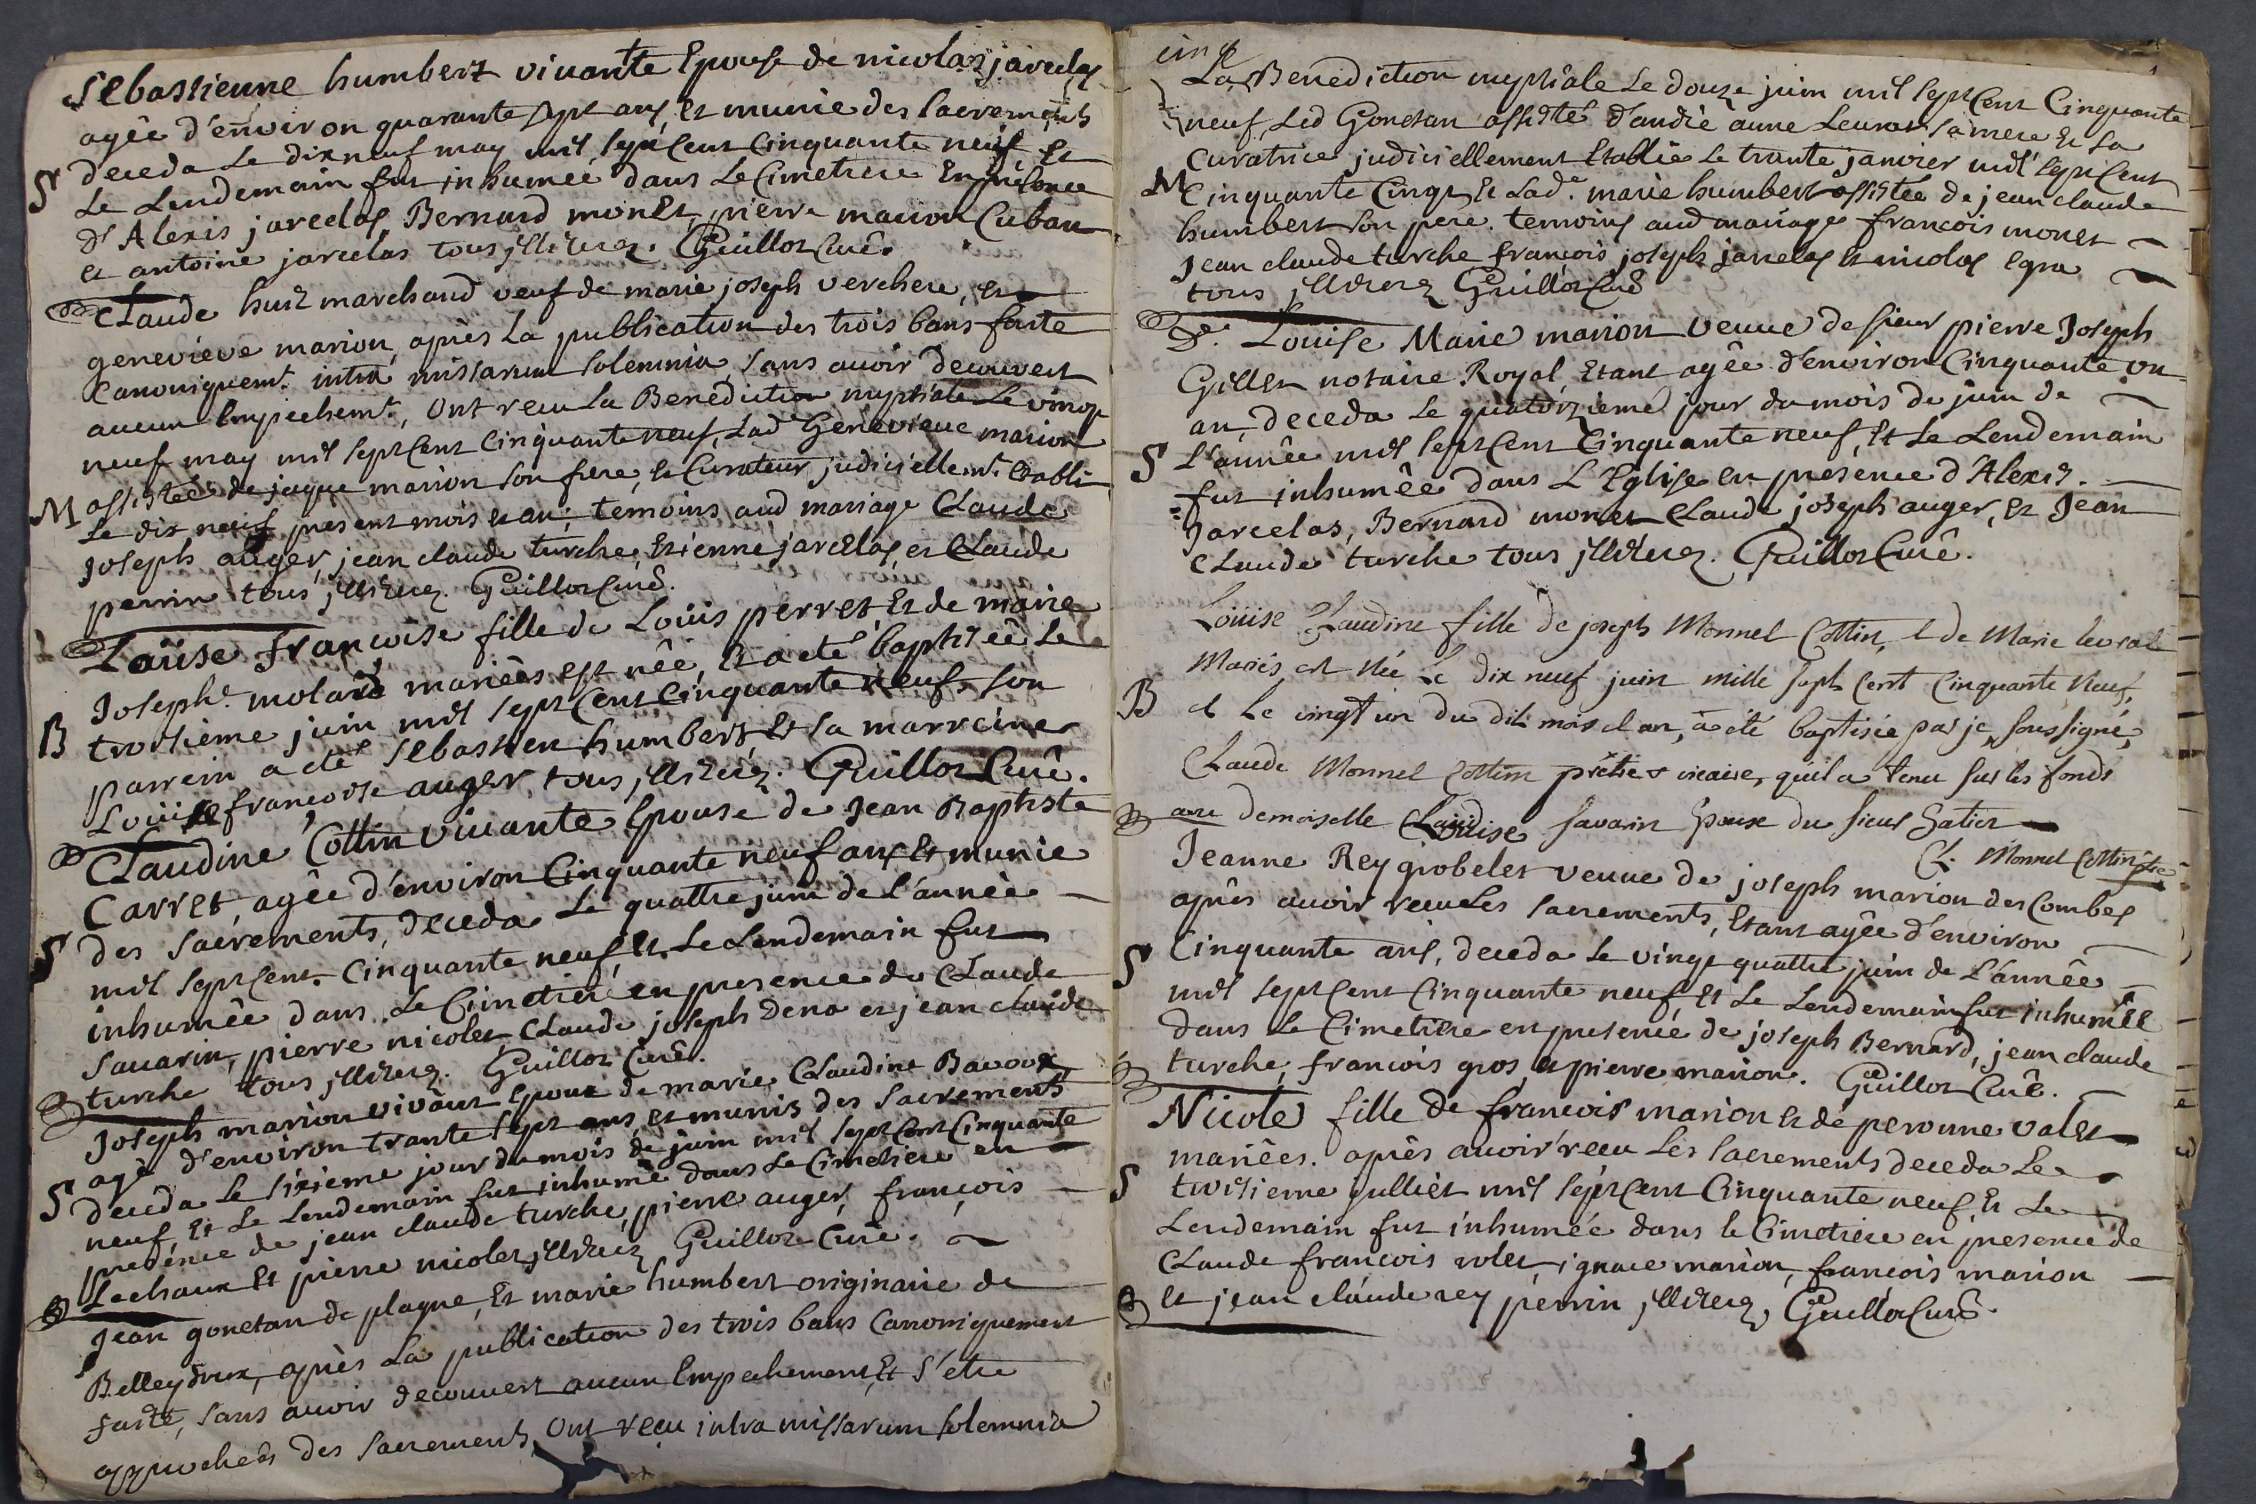 Sebastienne humbert vivante Epouse de nicolas jarcelas
agêe d'environ quarante sept ans, et munie des sacrements
deceda Le dixneuf may mil sept Cent Cinquante neuf, et
S Le Lendemain fut inhumeé dans Le Cimetiere En presence
d'Alexis jarcelas, Bernard monet, pierre marion Cuban
et antoine jarcelas tous jllitérez. Guillot Curé.
Claude huit marchand veuf de marie joseph verchere, et
genevieve marion, après La publication des trois bans faite
Canoniquemt. intra missarum solemnia, sans avoir decouvert
aucun Empechemt., Ont recu La Benediction nuptiale Le vingt
neuf may mil sept Cent Cinquante neuf, Lad Genevieve marion
M assistée de jaque marion son frere, et Curateur judiciellemt. Etabli
Le dix neuf present mois et an; temoins aud mariage Claude
Joseph auger, jean claude turche, Etienne jarcelas, et Claude
perrin tous jllitérez. Guillot Curé.
Loüise françoise fille de Loüis perret, Et de marie
Josephe. molard mariêes est nêe, Et a eté baptisêe Le
B troisieme juin mil sept Cent Cinquante neuf, son
parrein a eté Sebastien humbert, Et sa marreine
Loüise françoise auger tous jllitérez. Guillot Curê.
Claudine Cottin vivante Epouse de Jean Baptiste
Carret, agêe d'environ Cinquante neuf ans Et munie
S des sacrements, deceda Le quattre juin de L'année
mil sept Cent. Cinquante neuf, Et Le Lendemain fut
inhumêe dans Le Cimetiere en presence de Claude
Savarin, pierre nicolet, Claude joseph dena et jean claude
turche tous jllitérez. Guillot Curê.
Joseph marion vivant Epoux de marie Claudine Bavoux
agé d'environ trante sept ans, et munis des sacrements
S deceda Le sixieme jour du mois de juin mil sept Cent Cinquante
neuf, Et Le Lendemain fut inhumé dans Le Cimetiere en
presence de jean claude turche, pierre auger, françois
Lechaux Et pierre nicolet jllitérez Guillot Curé.
Jean gonetan de plagne, Et marie humbert originaire de
Belleydoux, après La publication des trois bans Canoniquement
faite, sans avoir decouvert aucun Empechement, Et s'etre
approchées des sacrements, Ont recu intra missarum solemnia
cinq
La Benediction nuptiale Le douze juin mil sept Cent Cinquante
neuf, Led Gonetan assisté d'andrè anne Levrat sa mere Et sa
Curatrice judiciellement Etablie Le trante janvier mil sept Cent
M Cinquante Cinq; Et Lade. marie humbert assistée de jean claude
humbert son pere. temoins aud mariage françois monet
Jean claude turche françois joseph jarcelas Et nicolas Egra
tous jllitérez Guillot Curé
De. Louise Marie marion veuve de sieur pierre Joseph
Gillet notaire Royal, Etant agêe d'environ Cinquante un
an, deceda Le quatorzieme jour du mois de juin de
S L'année mil sept Cent Cinquante neuf, Et Le Lendemain
fut inhumêe dans L'Eglise en presence d'Alexis
Jarcelas, Bernard monet Claude joseph auger, Et Jean
Claude turche tous jllitérez. Guillot Curê.
Loüise Claudine fille de joseph Monnet Cottin, & de Marie levrat
Mariés, est née Le dix neuf juin mille sept cent cinquante neuf,
B & Le vingt un du dit mois & an, à été baptisée par je soussigné,
Claude Monnet Cottin prêtre & vicaire, qui l'a tenu sur les fonds
avec demoiselle Louise Savarin Epouse du sieur
Cl. Monnet Cottin ptre
Jeanne Rey grobelet veuve de joseph marion des Combes
après avoir recu Les sacrements, Etant agêe d'environ
S Cinquante ans, deceda Le vingt quattre juin de L'année
mil sept Cent Cinquante neuf, Et Le Lendemain fut inhumée
dans Le Cimetiere en presence de joseph Bernard, jean claude
turche, francois gros, et pierre marion. Guillot Curê.
Nicole fille de francois marion et de peronne valet
mariêes. après avoir recu Les sacrements deceda Le
S troisieme julliet mil sept Cent Cinquante neuf, Et Le
Lendemain fut inhumée dans le Cimetiere en presence de
Claude francois rolet, ignace marion, françois marion
Et jean claude rey perrin jllitérez, Guillot Curé.